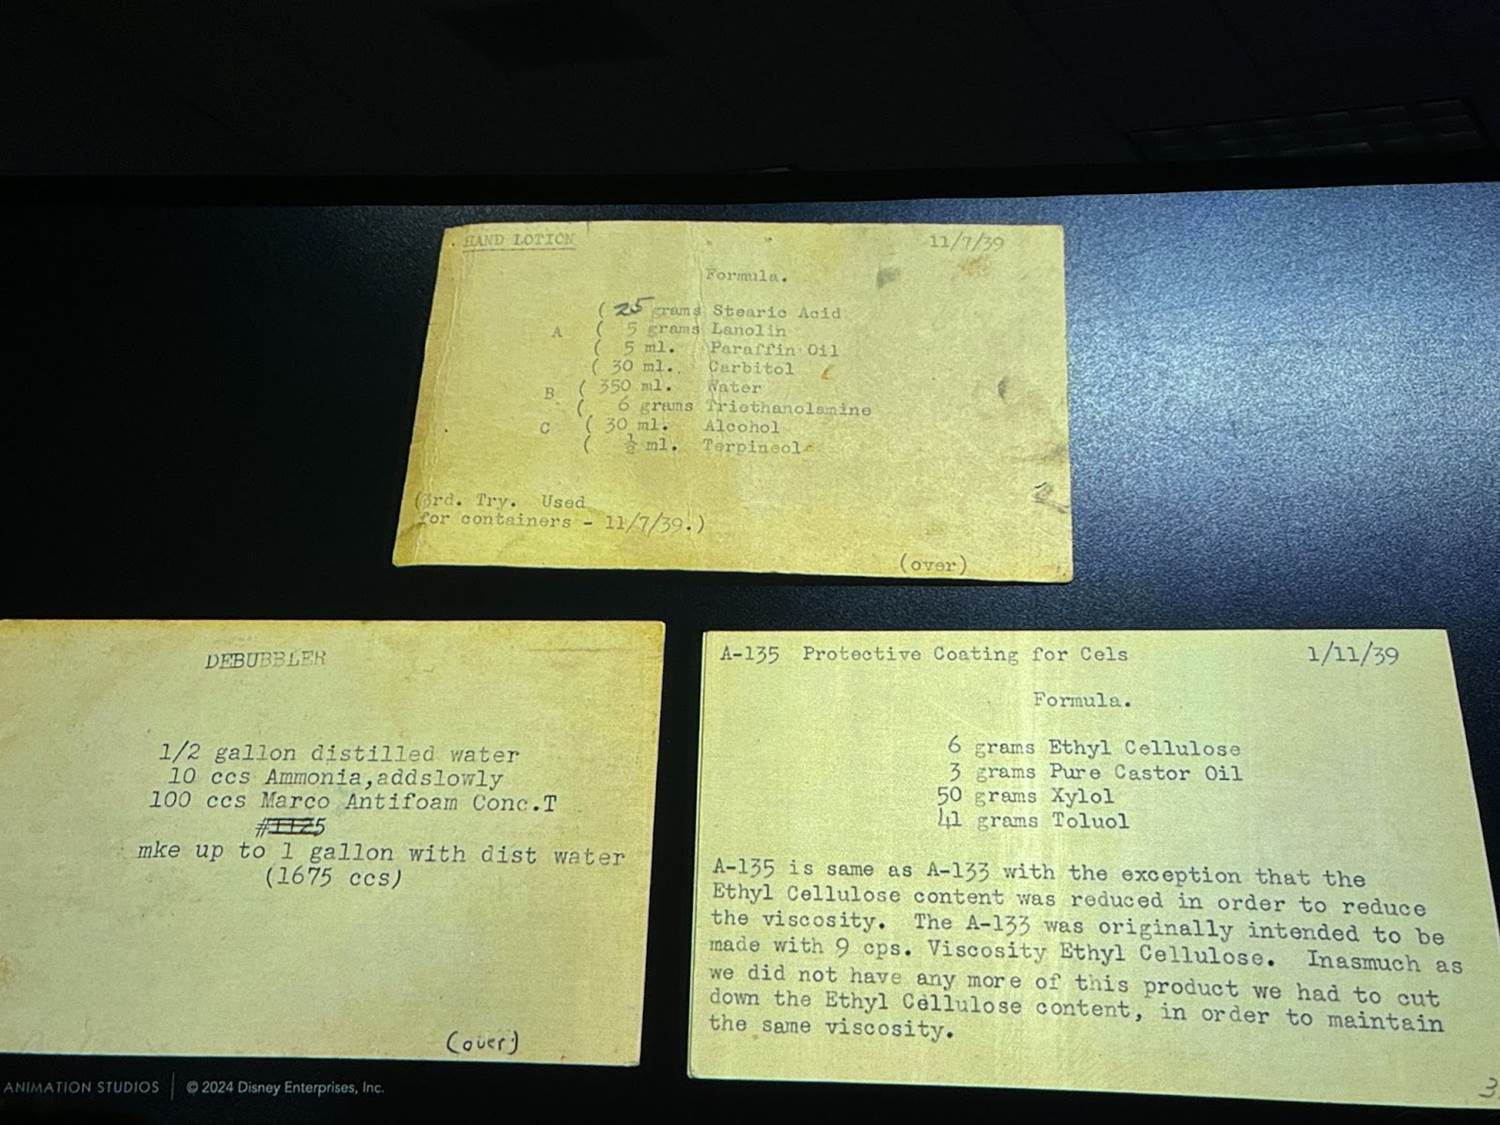 HAND LOTION 11/7/39
Formula.
( 25 grams Stearic Acid
A ( 5 grams Lanolin
( 5 ml. Paraffin Oil
( 30 ml. Carbitol
B ( 350 ml. Water
( 6 grams Triethanolamine
C ( 30 ml. Alcohol
( ½ ml. Terpineol
(3rd. Try. Used
for containers - 11/7/39.)
(over)
DEBUBBLER
1/2 gallon distilled water
10 ccs Ammonia,addslowly
100 ccs Marco Antifoam Conc.T
#1125
mke up to 1 gallon with dist water
(1675 ccs)
(over)
A-135 Protective Coating for Cels 1/11/39
Formula.
6 grams Ethyl Cellulose
3 grams Pure Castor Oil
50 grams Xylol
41 grams Toluol
A-135 is same as A-133 with the exception that the
Ethyl Cellulose content was reduced in order to reduce
the viscosity. The A-133 was originally intended to be
made with 9 cps. Viscosity Ethyl Cellulose. Inasmuch as
we did not have any more of this product we had to cut
down the Ethyl Cellulose content, in order to maintain
the same viscosity.
ANIMATION STUDIOS © 2024 Disney Enterprises, Inc.